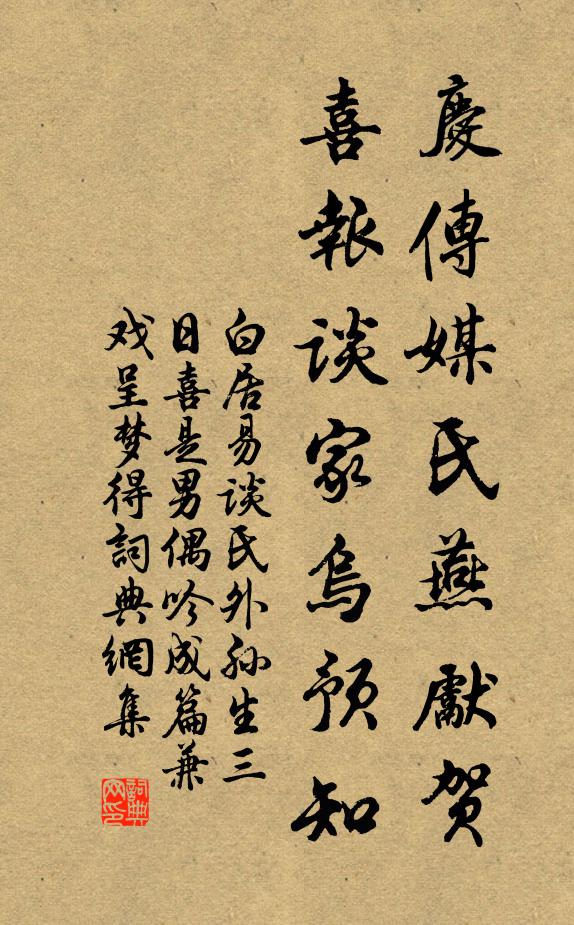 慶傳媒氏燕獻賀
喜報谈家烏預知
白居易谈氏外孙生三
日喜是男偶吟成篇兼
戏呈梦得詞典網集
詞典网印